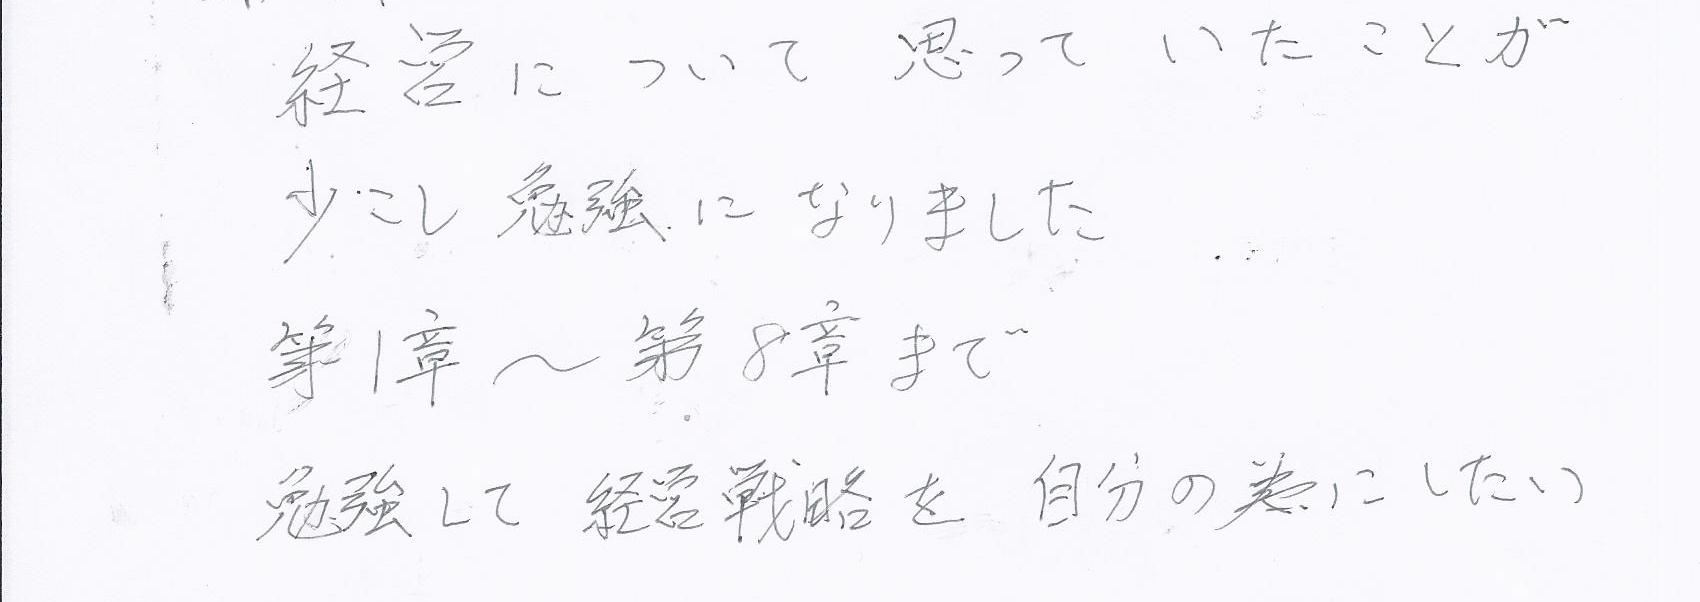 経営について思っていたことが
少こし勉強になりました
第1章～第8章まで
勉強して経営戦略を自分の為にしたい